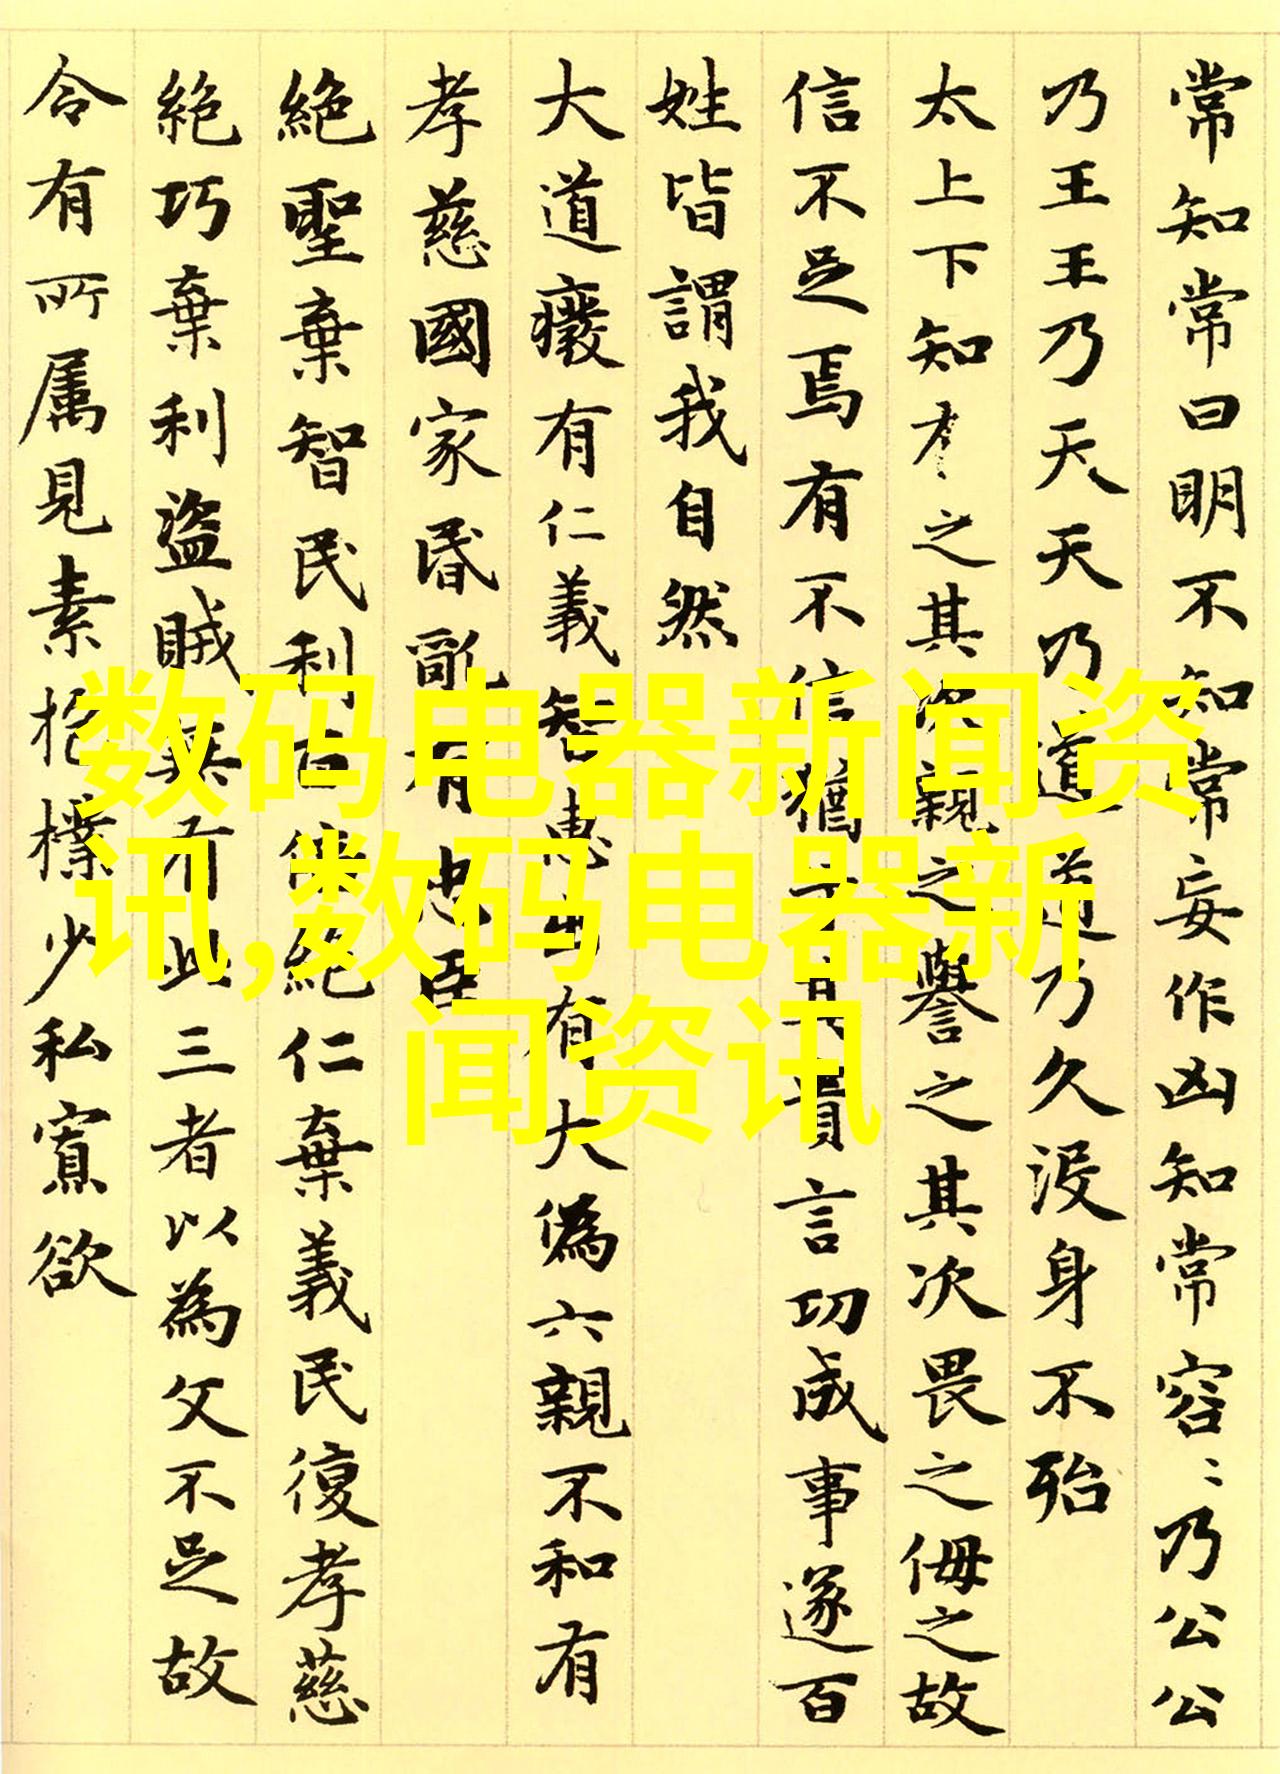 常知常曰明不知常妄作凶知常容〻乃公公
乃王王乃天天乃道道乃久没身不殆
太上下知有之其次親之譽之其次畏之侮之故
信不足焉有不信猶其貴言功成事遂百
姓皆謂我自然
大道癈有仁義智惠出有大偽六親不和有
孝慈國家昏亂有忠臣
絕聖棄智民利百倍絕仁棄義民復孝慈
絕巧棄利盜賊無有此三者以為文不足故
令有所属見素抱樸少私寡欲
数码电器新闻资
讯,数码电器新
闻资讯